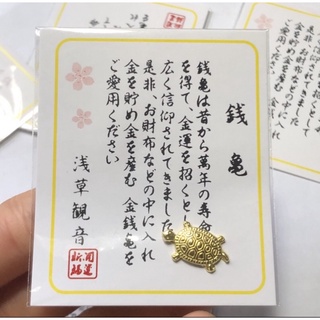 銭亀
銭亀は昔から萬年の寿命
を得て、金運を招くとし
広く信仰されてきました
是非、お財布などの中に入れ
金を貯め金を産む 金銭亀を
ご愛用ください
浅草観音
開運